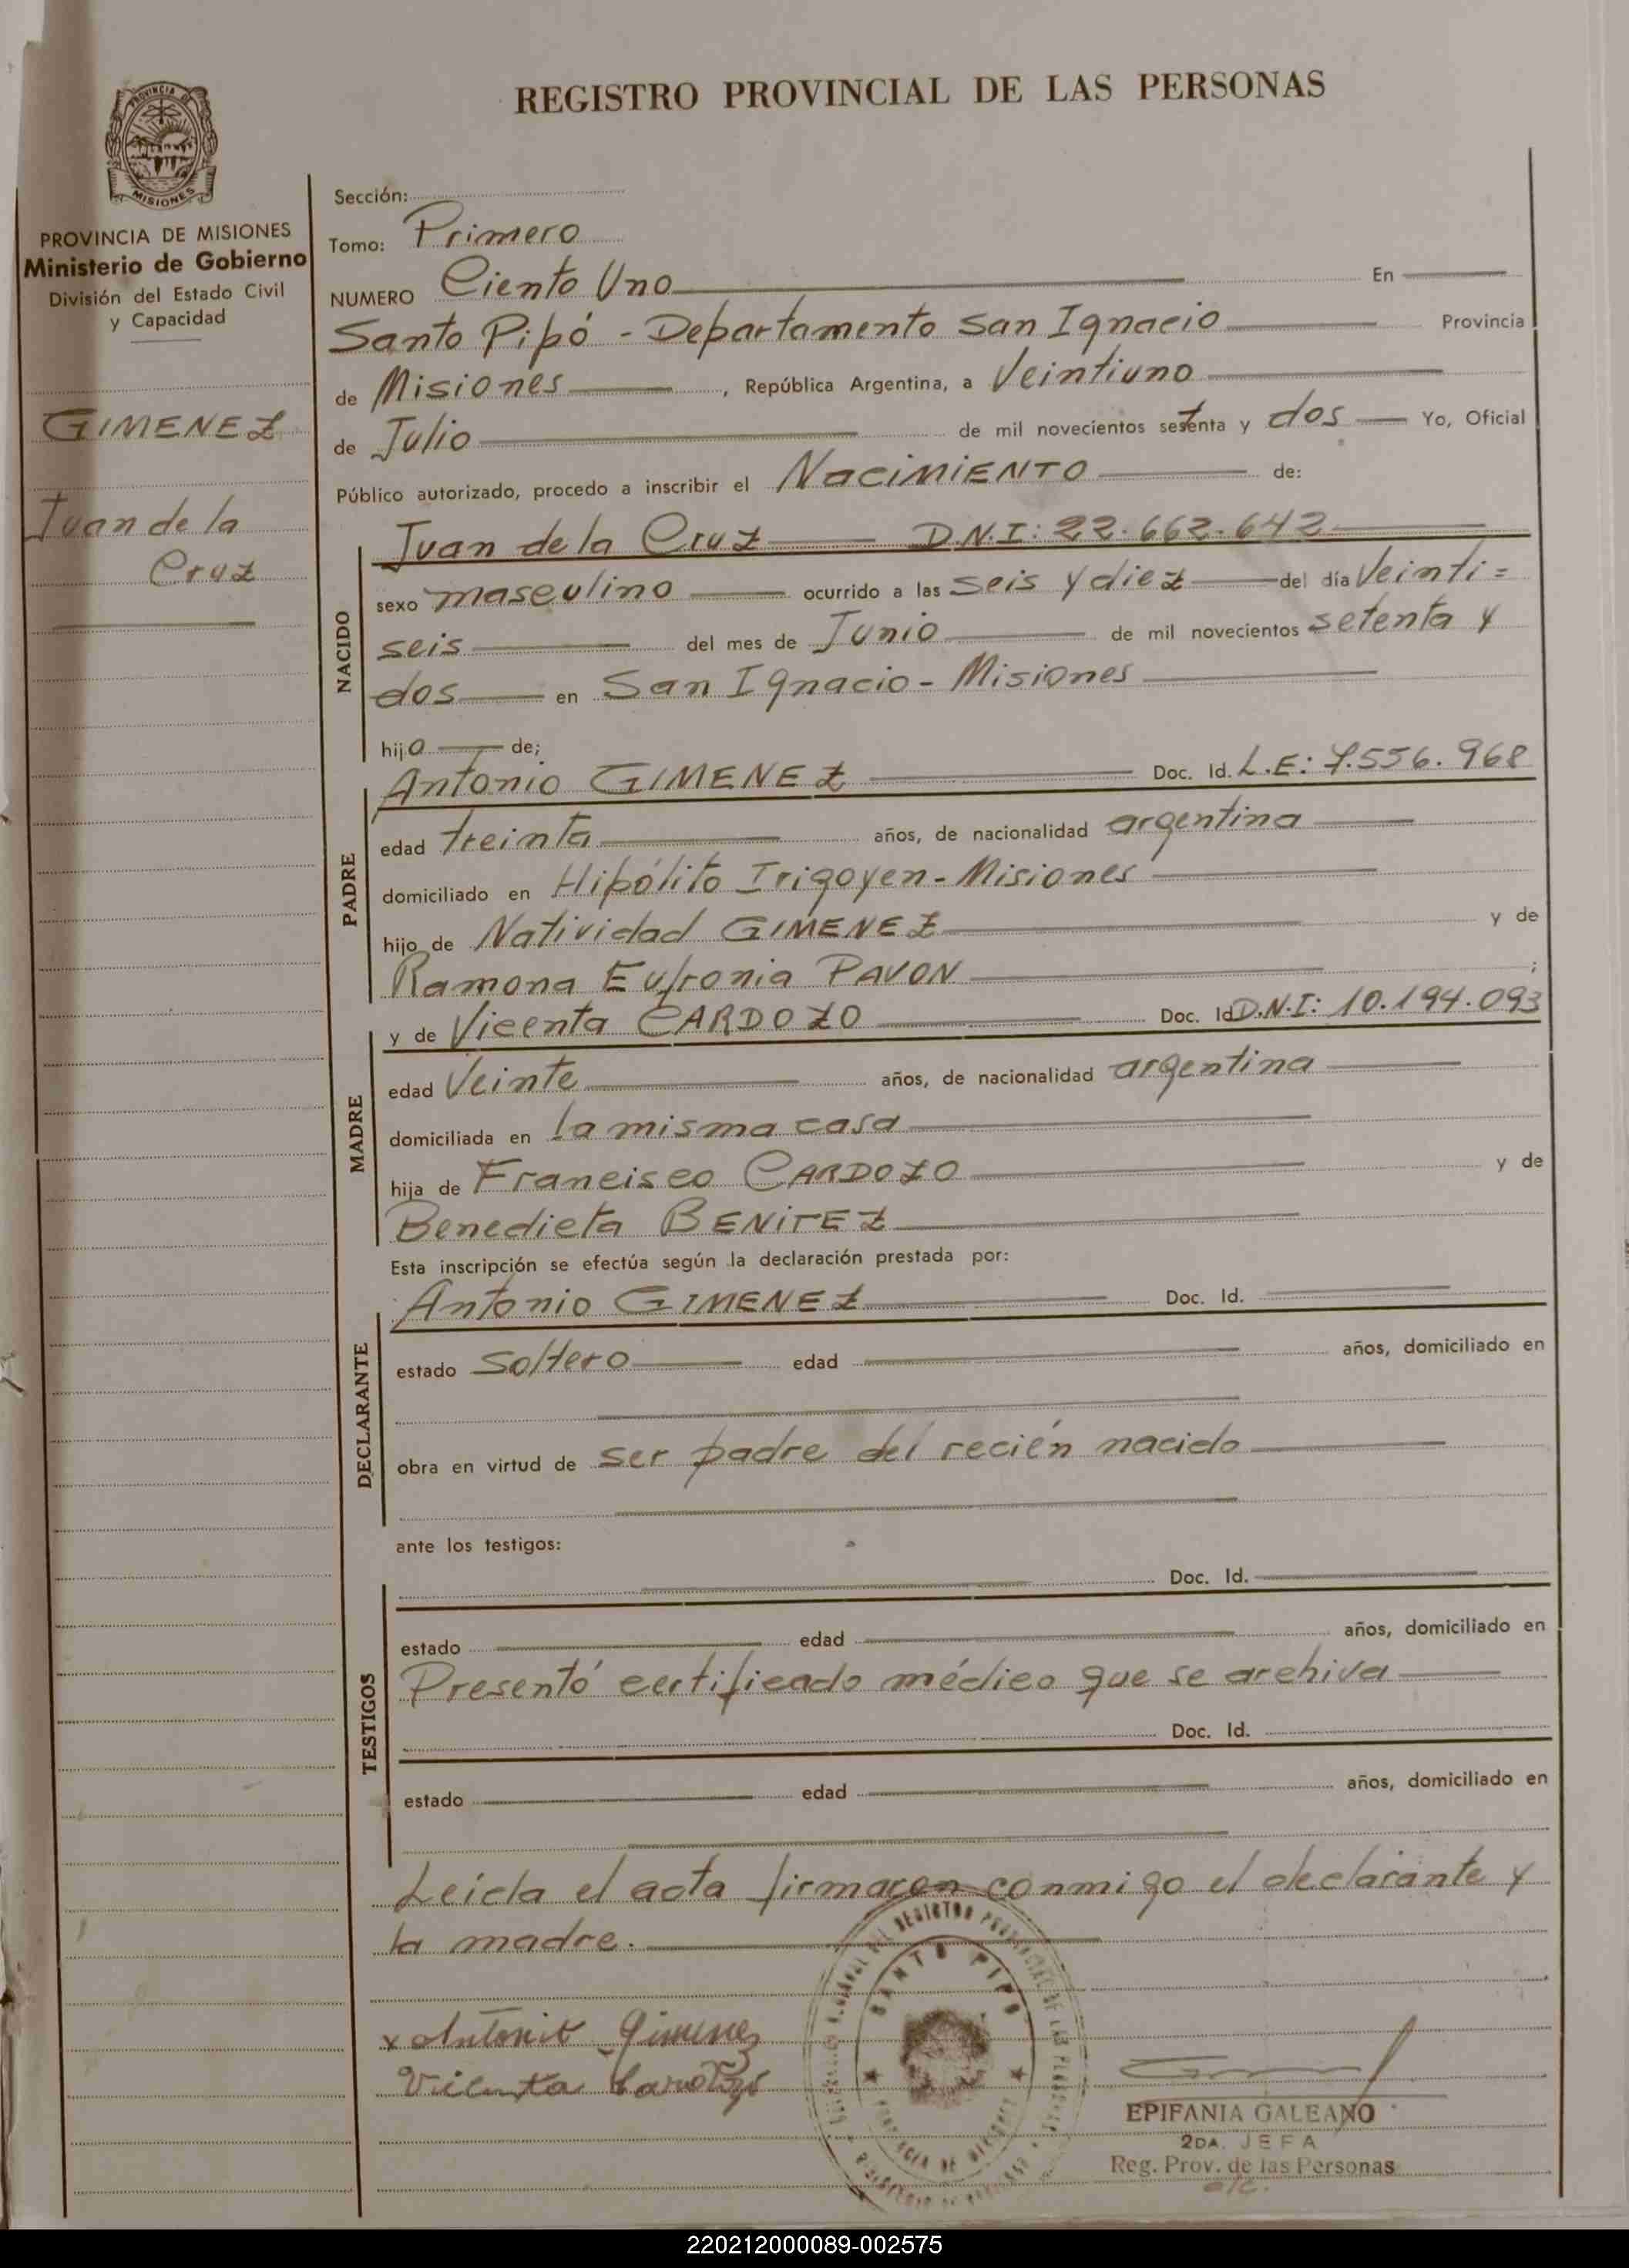 REGISTRO PROVINCIAL DE LAS PERSONAS
MISIONES
PROVINCIA DE MISIONES
Ministerio de Gobierno
División del Estado Civil
y Capacidad
GIMENEZ
Juan de la
Cruz
Sección:
Tomo: Primero
NUMERO Ciento Uno En
Santo Pipó - Departamento San Ignacio Provincia
de Misiones, República Argentina, a Veintiuno
de Julio de mil novecientos setenta y dos Yo, Oficial
Público autorizado, procedo a inscribir el NACIMIENTO de:
NACIDO
Juan de la Cruz D.N.I: 22.662.642
sexo masculino ocurrido a las seis y diez del día Veinti=
seis del mes de Junio de mil novecientos setenta y
dos en San Ignacio - Misiones
hijo de;
PADRE
Antonio GIMENEZ Doc. Id. L.E: 7.556.968
edad treinta años, de nacionalidad argentina
domiciliado en Hipólito Irigoyen - Misiones
hijo de Natividad GIMENEZ y de
Ramona Eufronia PAVON ;
MADRE
y de Vicenta CARDOZO Doc. Id D.N.I: 10.194.093
edad Veinte años, de nacionalidad argentina
domiciliada en la misma casa
hija de Francisco CARDOZO y de
Benedicta BENITEZ
Esta inscripción se efectúa según la declaración prestada por:
DECLARANTE
Antonio GIMENEZ Doc. Id.
estado Soltero edad años, domiciliado en
obra en virtud de ser padre del recién nacido
ante los testigos:
TESTIGOS
Doc. Id.
estado edad años, domiciliado en
Presentó certificado médico que se archiva
Doc. Id.
estado edad años, domiciliado en
Leida el acta firmaron conmigo el declarante y
la madre.
x Antonio Gimenez
Vicenta Cardozo
SANTO PIPO
EPIFANIA GALEANO
2DA. JEFA
Reg. Prov. de las Personas
220212000089-002575